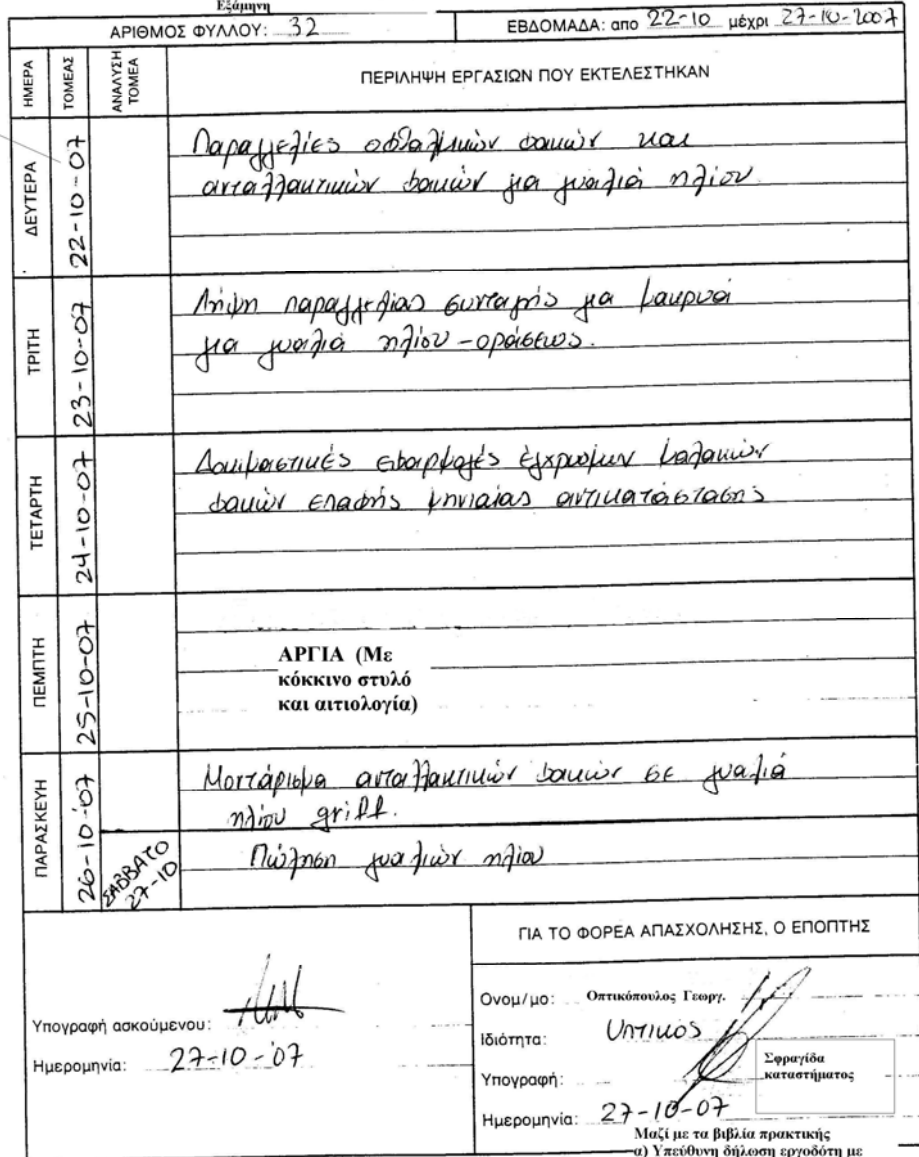 Εξάμηνη
ΑΡΙΘΜΟΣ ΦΥΛΛΟΥ: 32
ΕΒΔΟΜΑΔΑ: απο 22-10 μέχρι 27-10-2007
ΗΜΕΡΑ
ΤΟΜΕΑΣ
ΑΝΑΛΥΣΗ ΤΟΜΕΑ
ΠΕΡΙΛΗΨΗ ΕΡΓΑΣΙΩΝ ΠΟΥ ΕΚΤΕΛΕΣΤΗΚΑΝ
ΔΕΥΤΕΡΑ
22-10-07
Παραγγελίες οφθαλμικών φακών και
ανταλλακτικών φακών για γυαλιά ηλίου
ΤΡΙΤΗ
23-10-07
Λήψη παραγγελίας συνταγής για μακρυά
για γυαλιά ηλίου - οράσεως.
ΤΕΤΑΡΤΗ
24-10-07
Δοκιμαστικές εφαρμογές έγχρωμων μαλακών
φακών επαφής μηνιαίας αντικατάστασης
ΠΕΜΠΤΗ
25-10-07
ΑΡΓΙΑ (Με
κόκκινο στυλό
και αιτιολογία)
ΠΑΡΑΣΚΕΥΗ
26-10-'07
Μοντάρισμα ανταλλακτικών φακών σε γυαλιά
ηλίου griff.
ΣΑΒΒΑΤΟ
27-10
Πώληση γυαλιών ηλίου
Υπογραφή ασκούμενου:
Ημερομηνία: 27-10-'07
ΓΙΑ ΤΟ ΦΟΡΕΑ ΑΠΑΣΧΟΛΗΣΗΣ, Ο ΕΠΟΠΤΗΣ
Ονομ/μο: Οπτικόπουλος Γεωργ.
Ιδιότητα: Οπτικός
Υπογραφή:
Σφραγίδα
καταστήματος
Ημερομηνία: 27-10-07
Μαζί με τα βιβλία πρακτικής
α) Υπεύθυνη δήλωση εργοδότη με